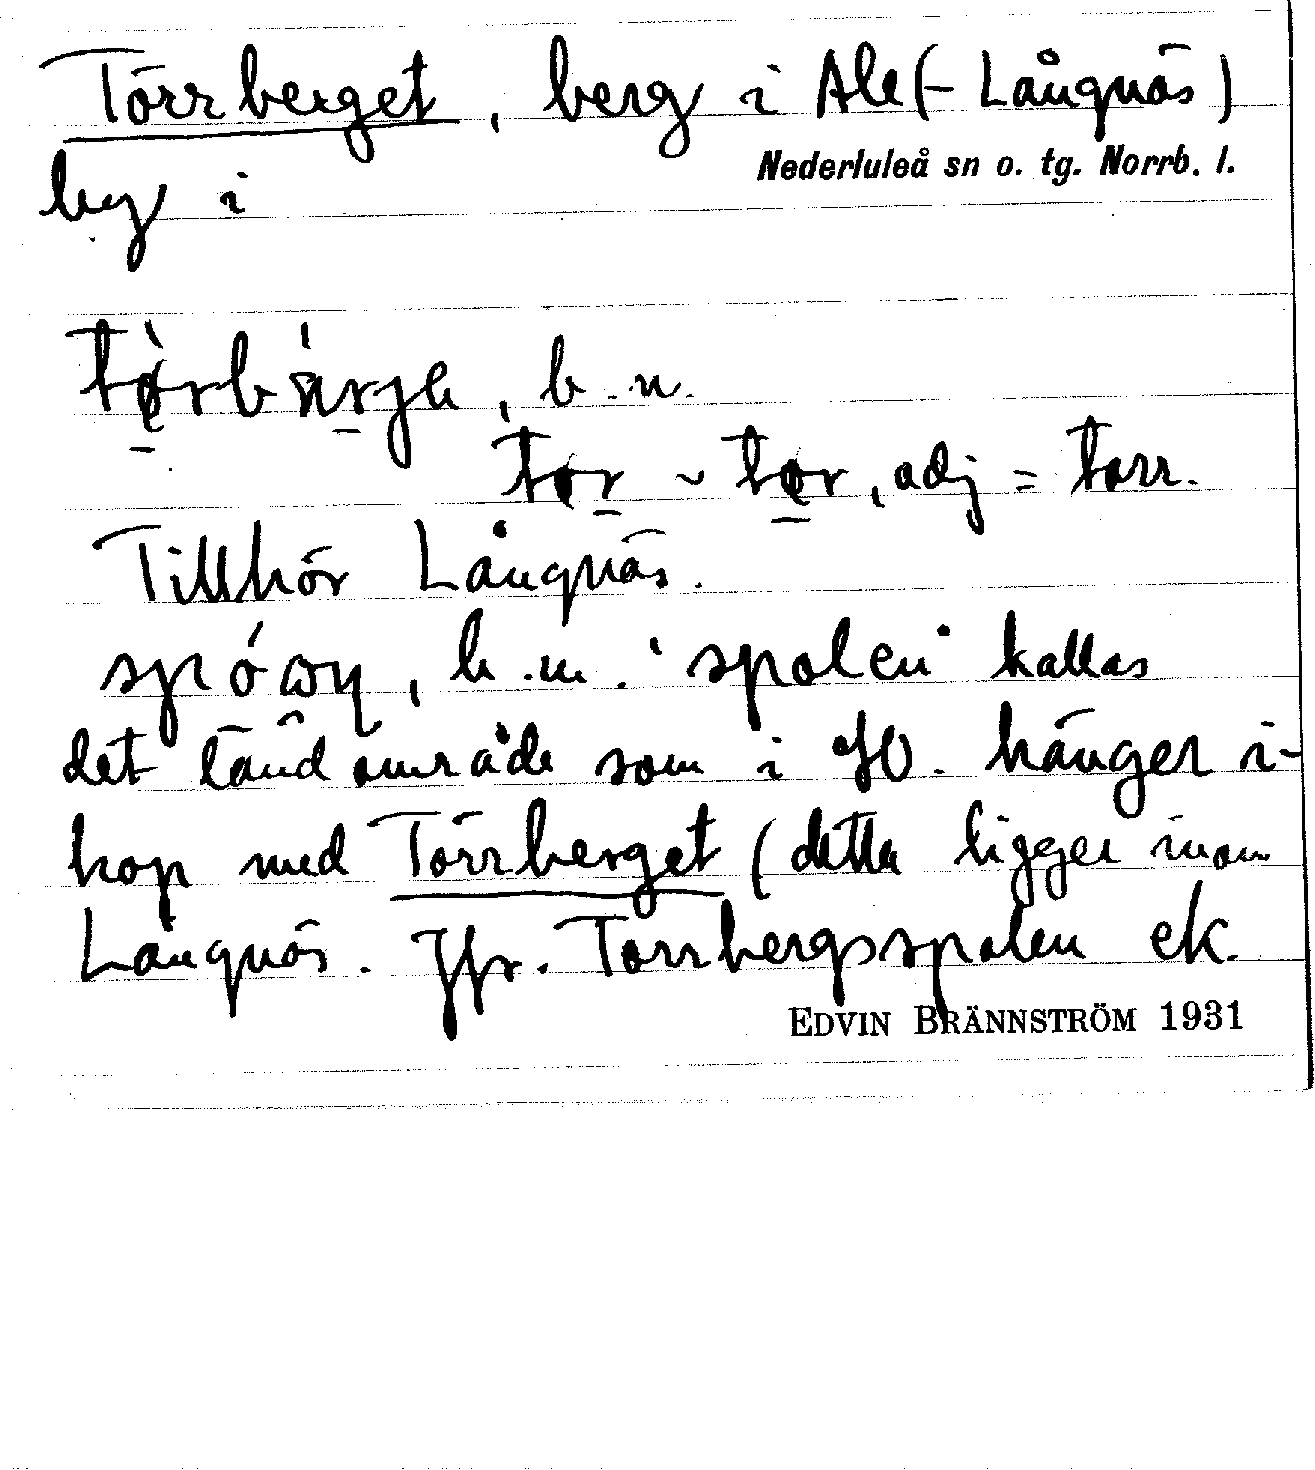 Törrberget, berg i Ale (- Långnäs)
Nederluleå sn o. tg. Norrb. l.
by i
b. n.
tor ~ tor, adj = torr.
Tillhör Långnäs.
b. m. "spolen" kallas
det landområde som i hänger i-
hop med Törrberget (detta ligger inom
Långnäs. Jfr. Torrbergsspolen ek.
EDVIN BRÄNNSTRÖM 1931